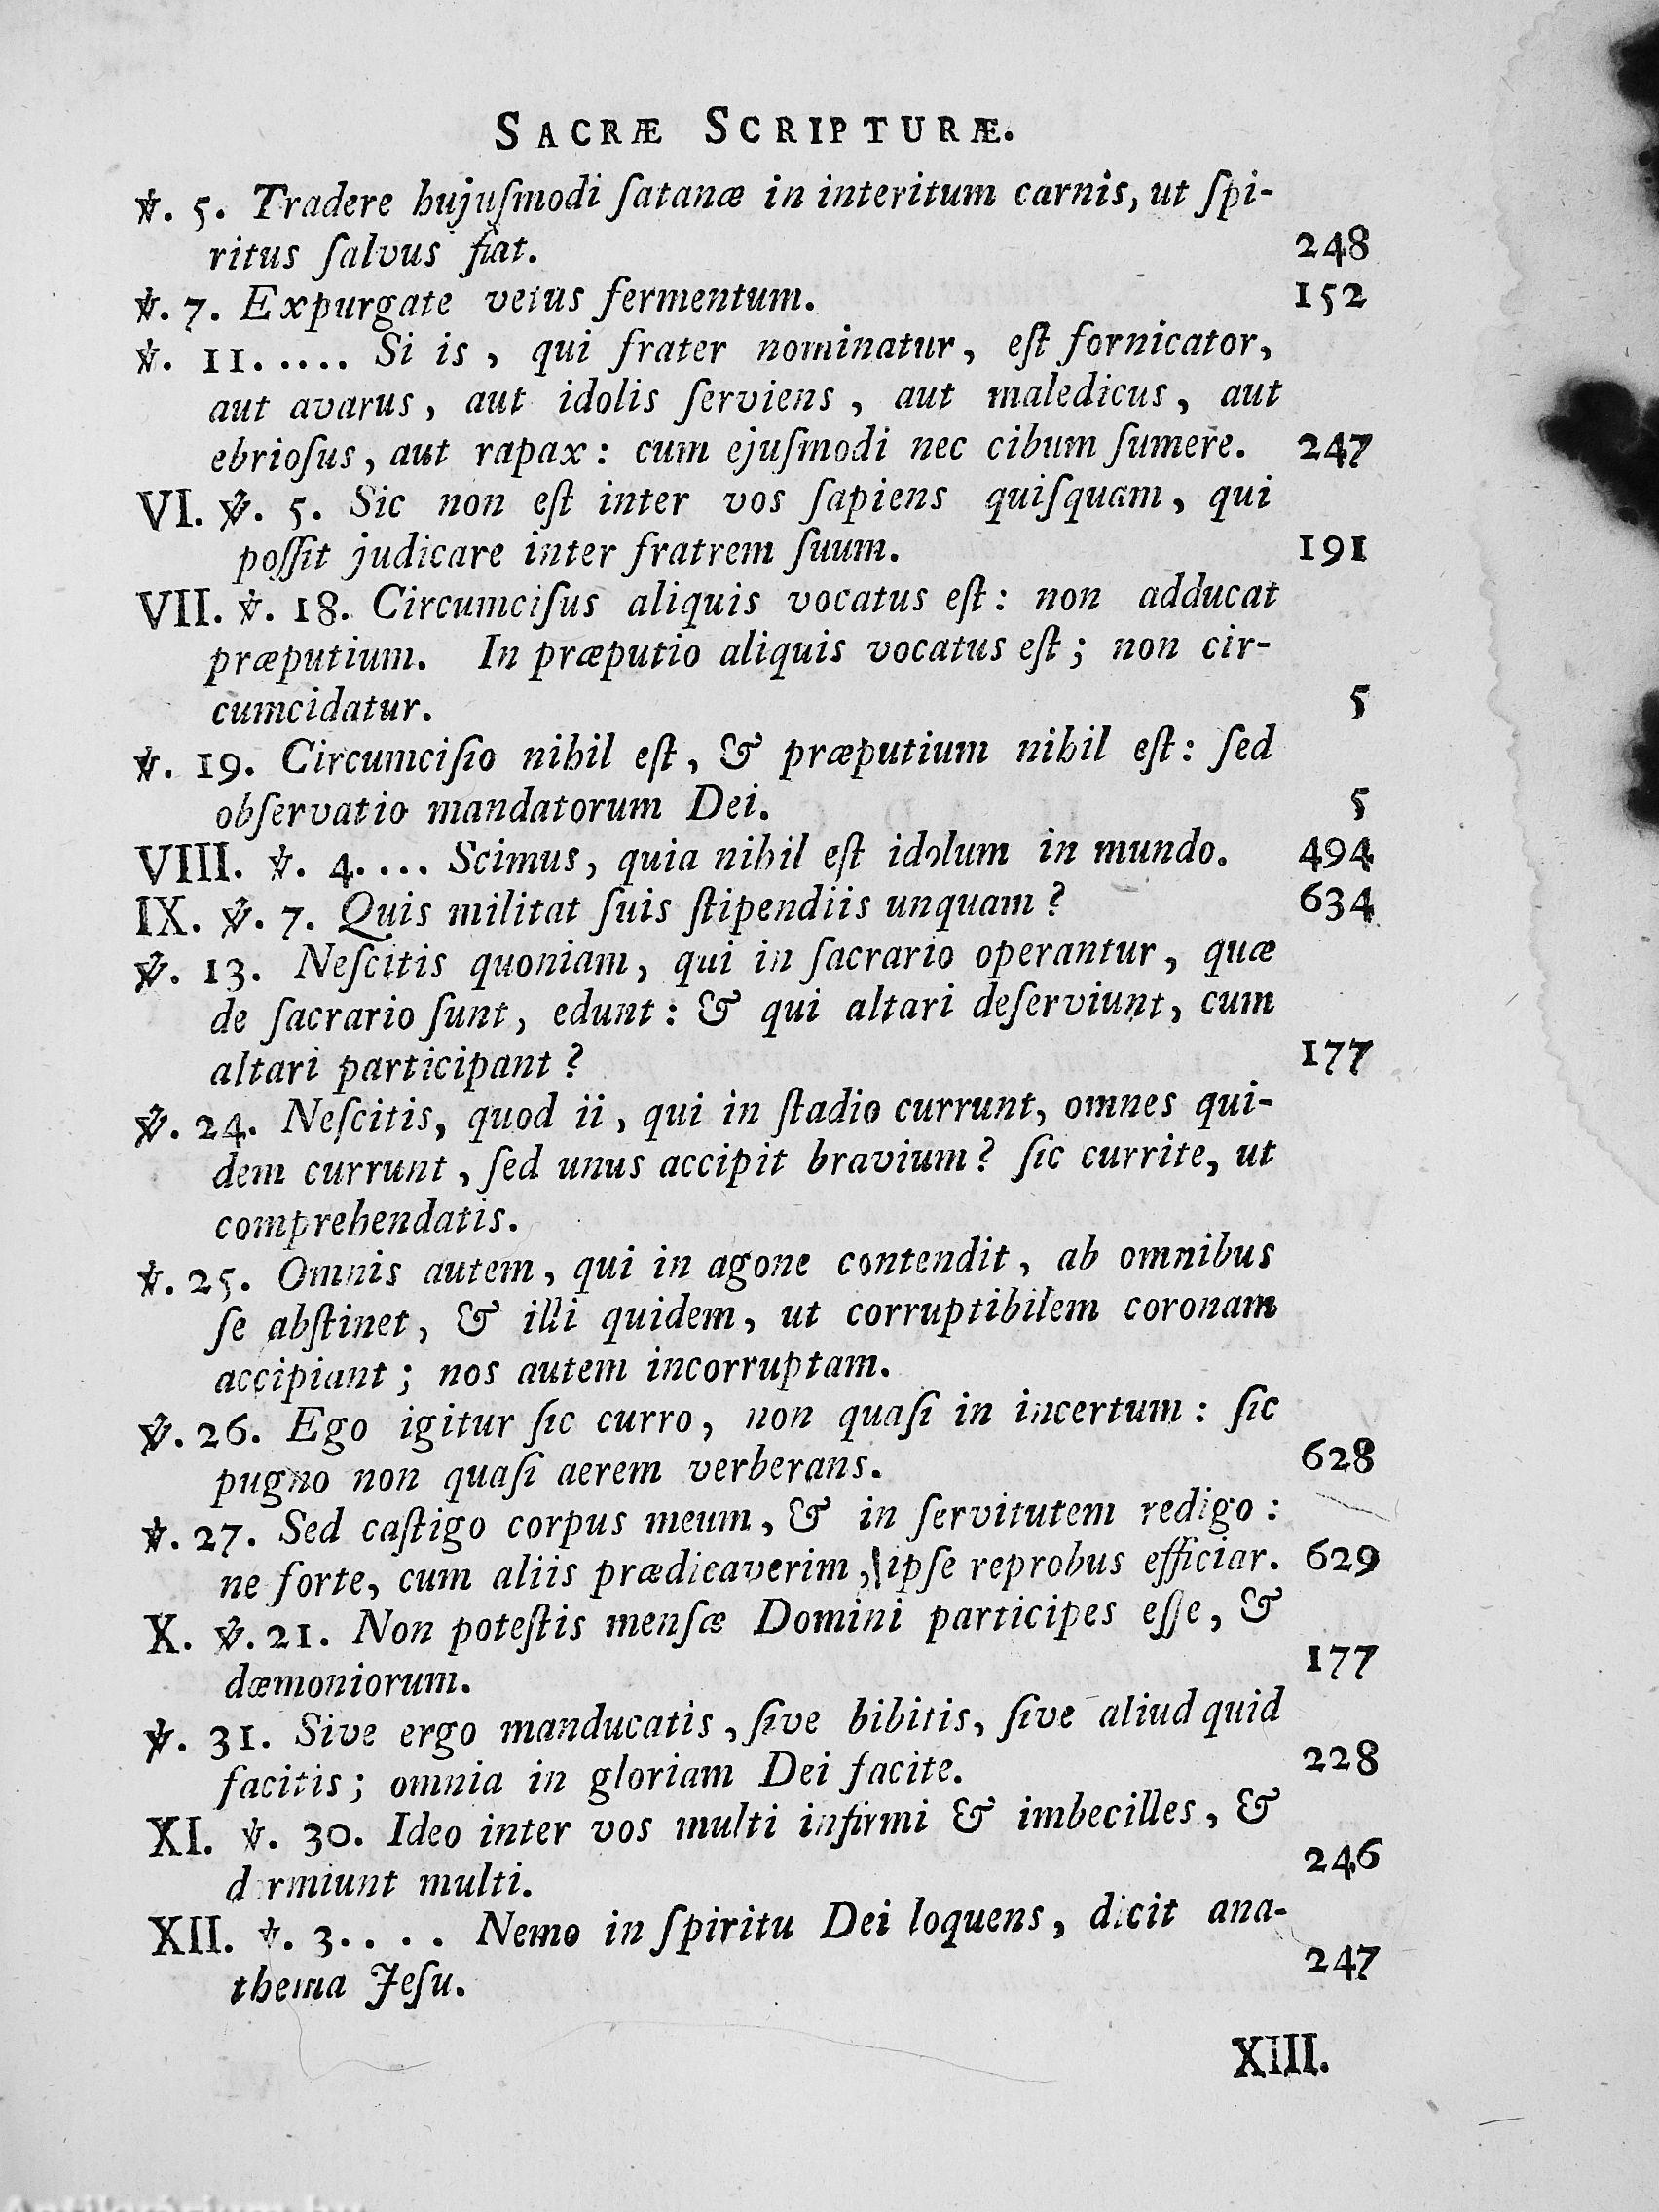 SACRÆ SCRIPTURÆ.
℣. 5. Tradere hujuſmodi ſatanæ in interitum carnis, ut ſpi-
ritus ſalvus fiat. 248
℣. 7. Expurgate vetus fermentum. 152
℣. 11..... Si is, qui frater nominatur, eſt fornicator,
aut avarus, aut idolis ſerviens, aut maledicus, aut
ebrioſus, aut rapax: cum ejuſmodi nec cibum ſumere. 247
VI. ℣. 5. Sic non eſt inter vos ſapiens quiſquam, qui
poſſit judicare inter fratrem ſuum. 191
VII. ℣. 18. Circumciſus aliquis vocatus eſt: non adducat
præputium. In præputio aliquis vocatus eſt; non cir-
cumcidatur. 5
℣. 19. Circumciſio nihil eſt, & præputium nihil eſt: ſed
obſervatio mandatorum Dei. 5
VIII. ℣. 4.... Scimus, quia nihil eſt idolum in mundo. 494
IX. ℣. 7. Quis militat ſuis ſtipendiis unquam? 634
℣. 13. Neſcitis quoniam, qui in ſacrario operantur, quæ
de ſacrario ſunt, edunt: & qui altari deſerviunt, cum
altari participant? 177
℣. 24. Neſcitis, quod ii, qui in ſtadio currunt, omnes qui-
dem currunt, ſed unus accipit bravium? ſic currite, ut
comprehendatis.
℣. 25. Omnis autem, qui in agone contendit, ab omnibus
ſe abſtinet, & illi quidem, ut corruptibilem coronam
accipiant; nos autem incorruptam.
℣. 26. Ego igitur ſic curro, non quaſi in incertum: ſic
pugno non quaſi aerem verberans. 628
℣. 27. Sed caſtigo corpus meum, & in ſervitutem redigo:
ne forte, cum aliis prædicaverim, ipſe reprobus efficiar. 629
X. ℣. 21. Non poteſtis menſæ Domini participes eſſe, &
dæmoniorum. 177
℣. 31. Sive ergo manducatis, ſive bibitis, ſive aliud quid
facitis; omnia in gloriam Dei facite. 228
XI. ℣. 30. Ideo inter vos multi infirmi & imbecilles, &
dormiunt multi. 246
XII. ℣. 3.... Nemo in ſpiritu Dei loquens, dicit ana-
thema Jeſu. 247
XIII.